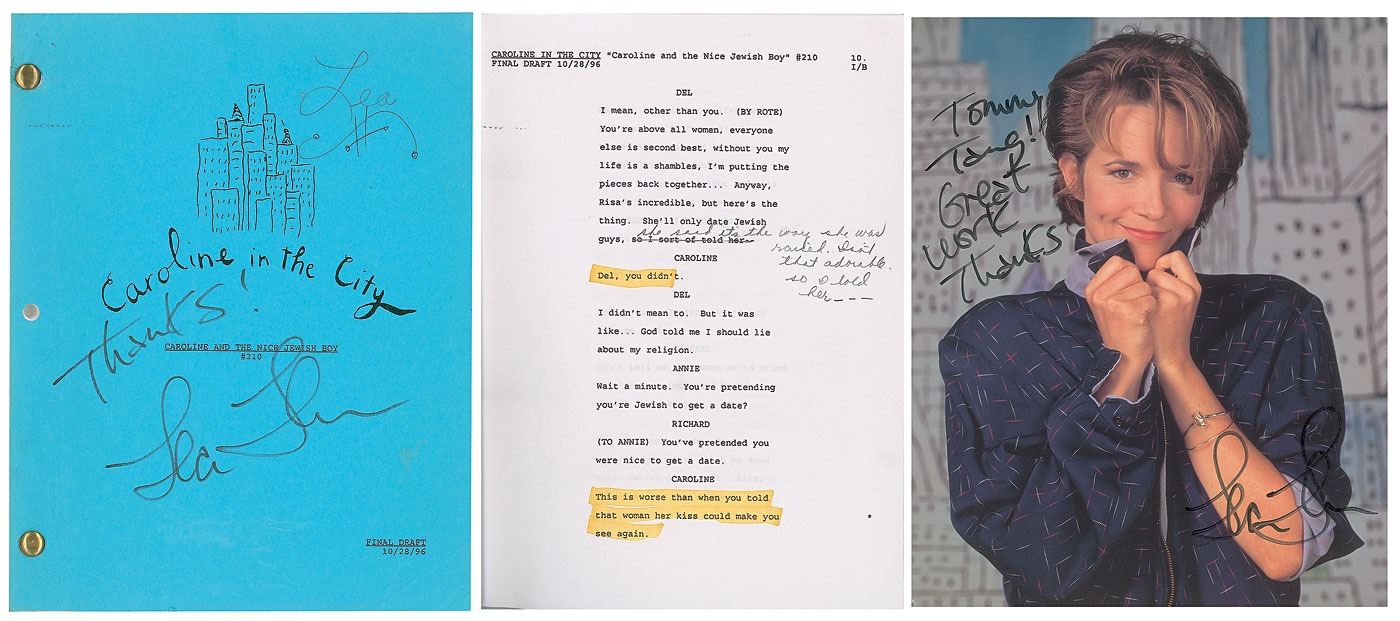 Lea
Caroline in the City
Thanks!
CAROLINE AND THE NICE JEWISH BOY
#210
Lea
FINAL DRAFT
10/28/96
CAROLINE IN THE CITY "Caroline and the Nice Jewish Boy" #210 10.
FINAL DRAFT 10/28/96 I/B
DEL
I mean, other than you. (BY ROTE)
You're above all women, everyone
else is second best, without you my
life is a shambles, I'm putting the
pieces back together... Anyway,
Risa's incredible, but here's the
thing. She'll only date Jewish
guys, so I sort of told her--
she said its the way she was
raised. Isn't
that adorable.
so I told
her---
CAROLINE
Del, you didn't.
DEL
I didn't mean to. But it was
like... God told me I should lie
about my religion.
ANNIE
Wait a minute. You're pretending
you're Jewish to get a date?
RICHARD
(TO ANNIE) You've pretended you
were nice to get a date.
CAROLINE
This is worse than when you told
that woman her kiss could make you *
see again.
Tommy
Tang!!
Great
work
Thanks
Lea